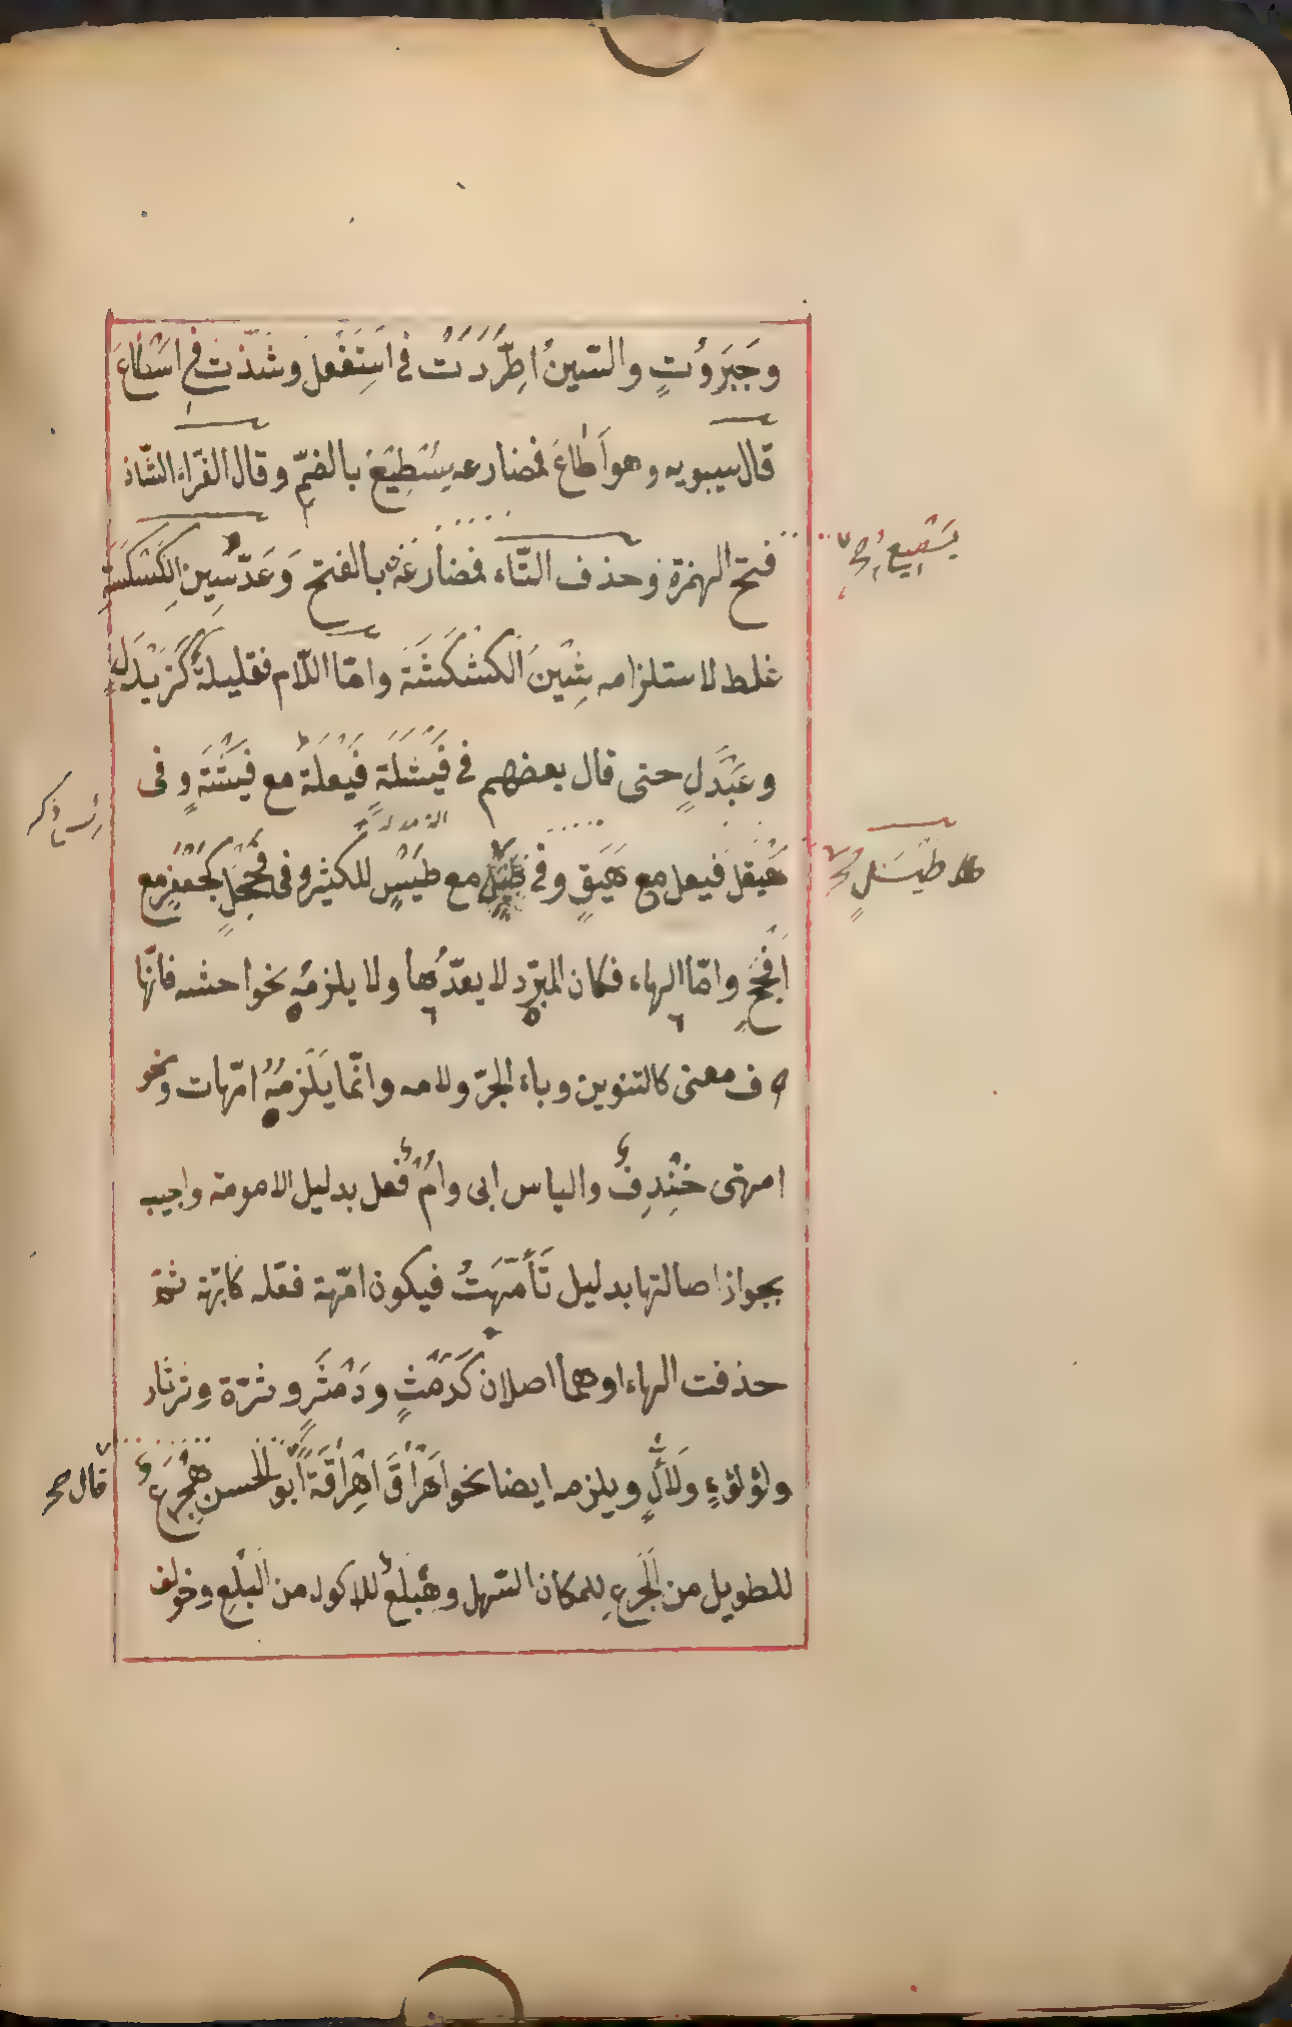 وجَبَرُوتٍ والسّينُ اطّرَدَتْ في اسْتَفْعَلَ وشذّت في اسْطَاعَ
قال سيبويه وهو أَطَاعَ فمضارعه يُسْطِيعُ بالضمّ وقال الفرّاء الشّاذ
فتح الهمزة وحذف التّاء فمضارعُه بالفتح وَعَدّ سِينِ الكَسْكَسَةِ
غلط لاستلزامه شِيْنَ الكَشْكَشَة وامّا اللّام فقليلةٌ كَزَيْدَلٍ
وعَبْدَلٍ حتى قال بعضهم في فَيْشَلَةٍ فَيْعَلَة مع فَيْشَةٍ وفى
هَيْقل فيعل مع هَيْقٍ وفى مع طَيْسٍ للكثير وفى فَحْجَلٍ كجَعْفَرٍ مع
أَفْحَجَ وامّا الهاء فكان المبرّد لا يعدّها ولا يلزمه نحو اخشه فانّها
حرف معنى كالتنوين وباء الجرّ ولامه وانّما يَلْزَمُهُ امّهات ونحو
امهتى خِنْدِفُ والياس ابى وامّ فُعل بدليل الامومة واجيب
بجواز اصالتها بدليل تَأَمَّهَتُ فيكون امّهة فعّله كابّهة ثمّ
حذفت الهاء او هما اصلان كَدَمْثٍ ودَمْثَرٍ وثرّة وثرثار
ولؤلؤءٍ ولَأَّلٍ ويلزمه ايضا نحو أَهْرَاقَ اهْرَاقَةً أبو الحسن هِجْرَعٌ
للطويل من الجَرَعِ للمكان السّهل وهِبْلَعٌ للاكول من البَلْعِ وخولف
يَسْطيع صح
طَيْسَلٍ صح
قال صح